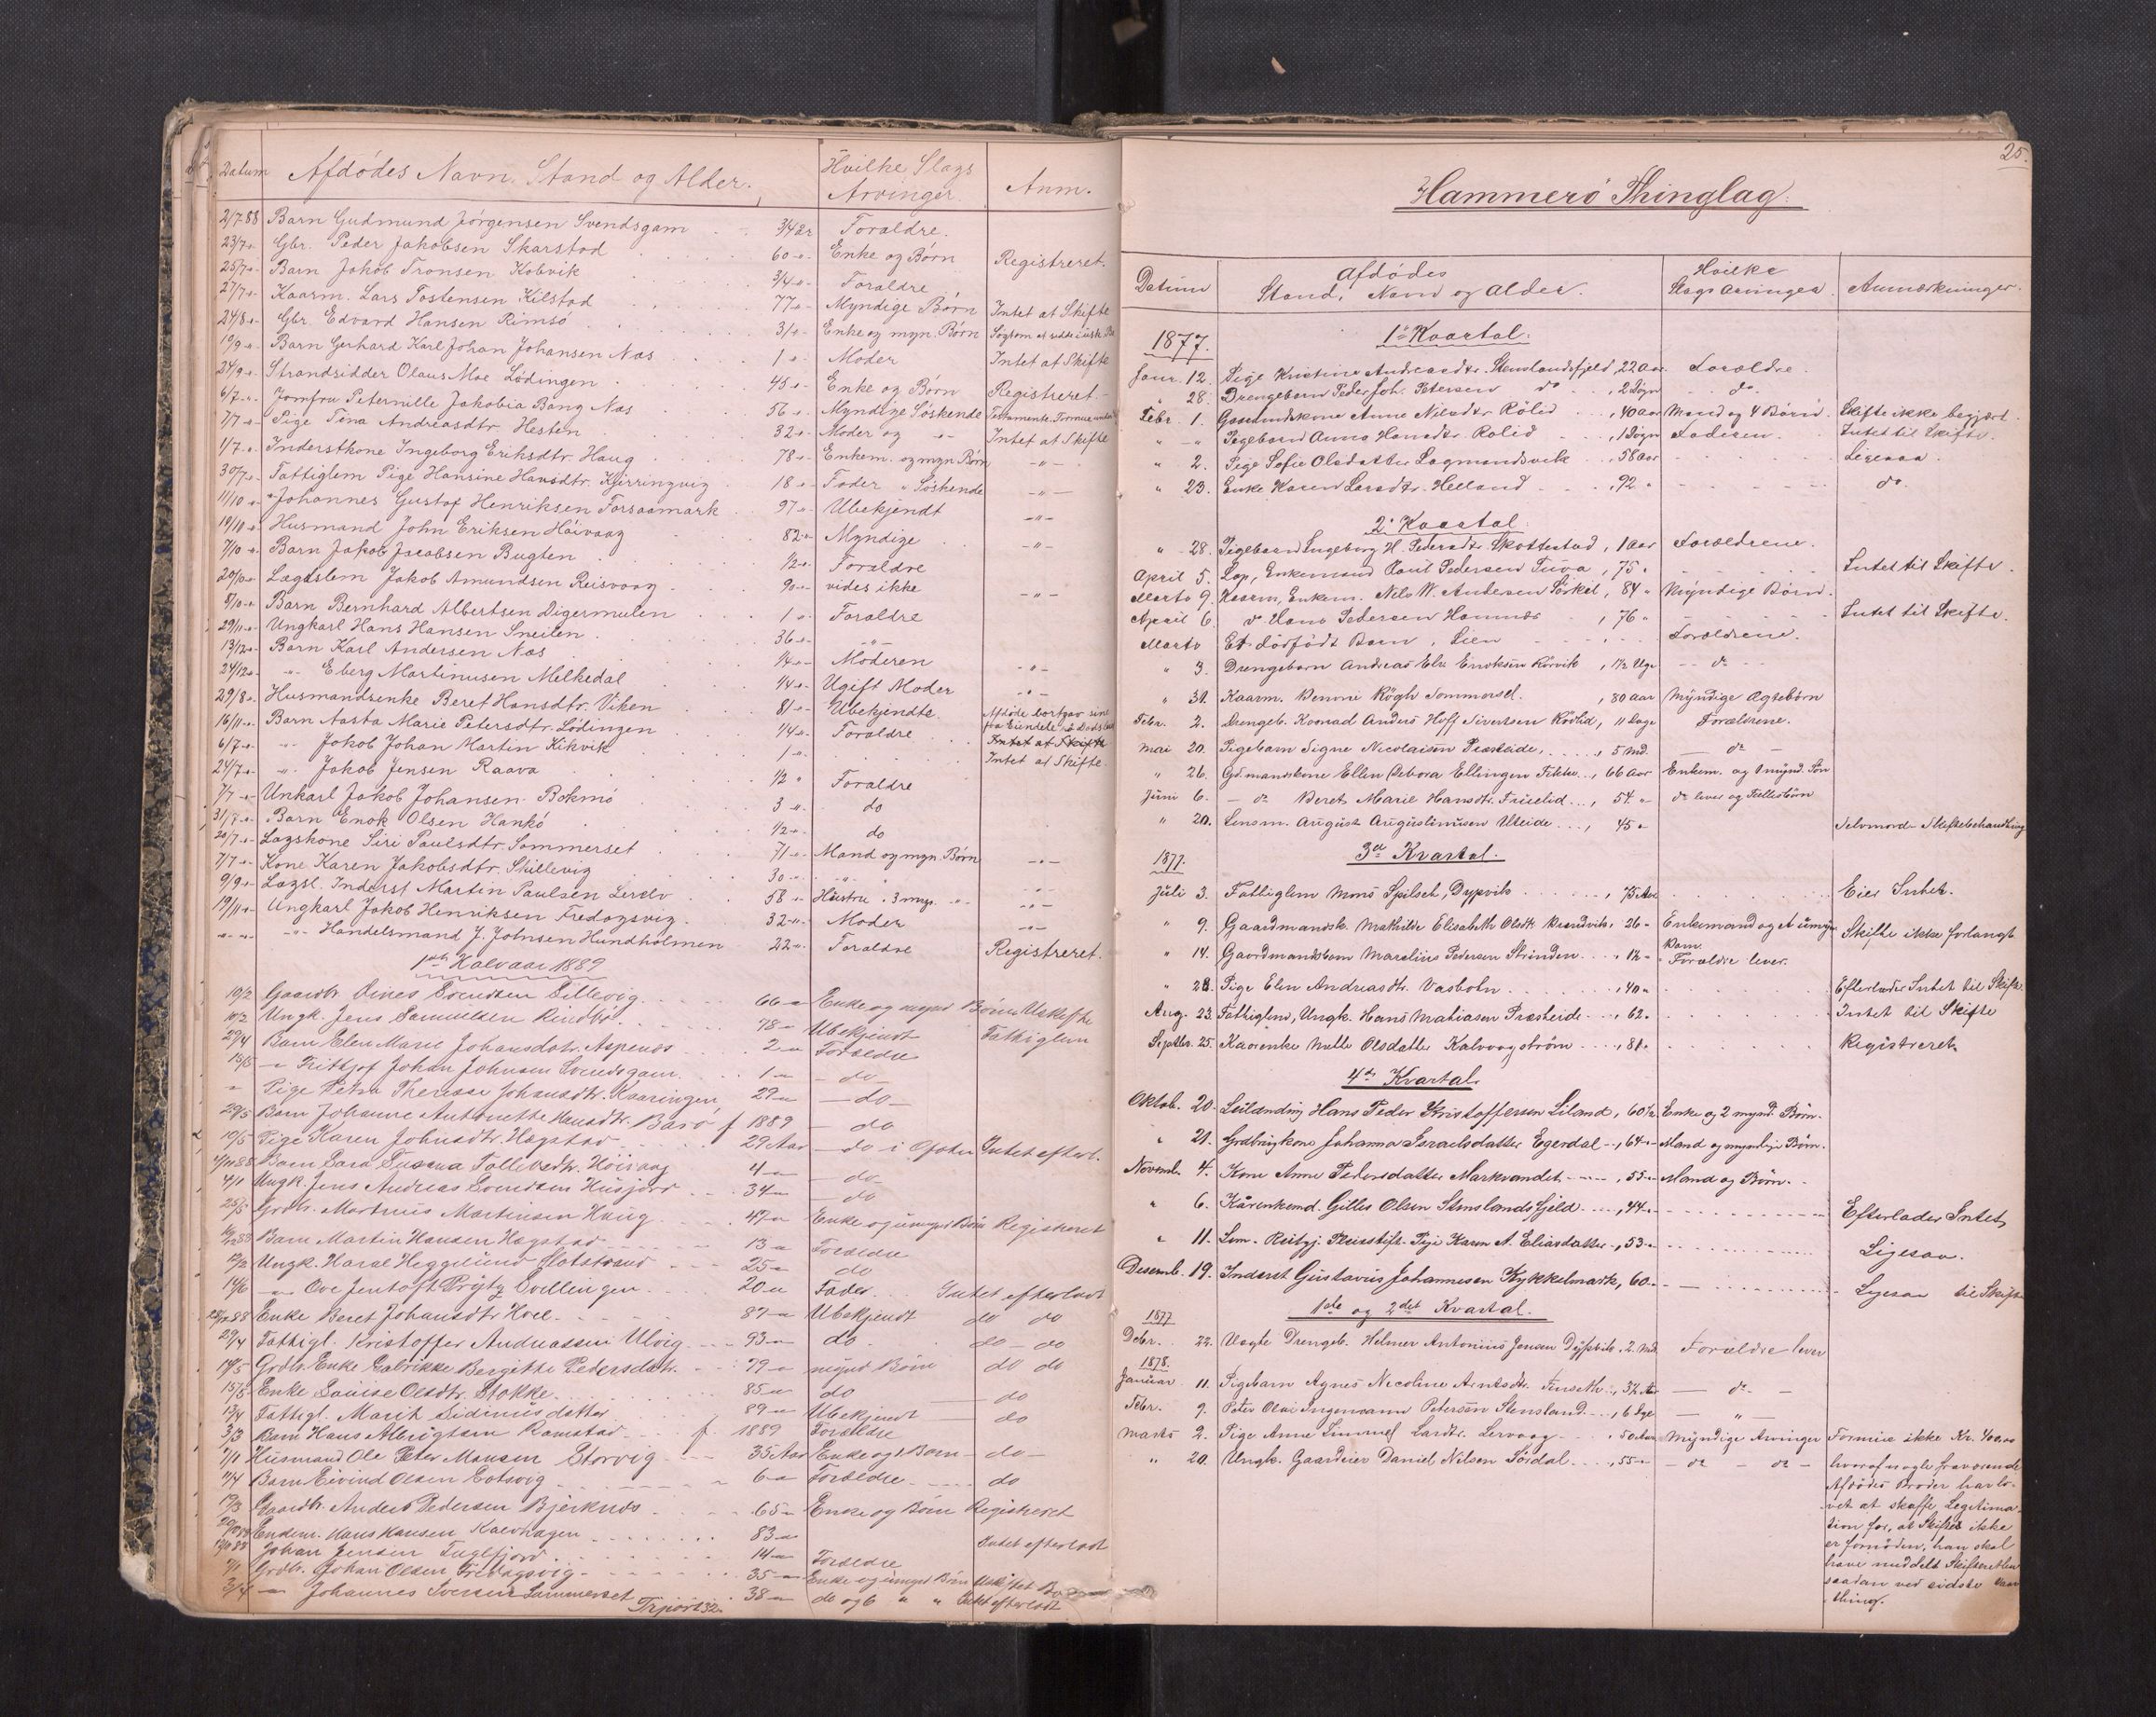 Datum Afdödes Navn. Stand og Alder. Hvilke Slags Arvinger Anm.
2/7 88 Barn Gudmund Jörgensen Svendsgam 3/4 år Foraldre.
23/7 Gbr. Peder Jakobsen Skarstad 60 Enke og Börn Registreret.
25/7 Barn Jakob Tronsen Kobvik 3/4 Foraldre
27/7 Kaarm. Lars Tostensen Kilstad 77 Myndige Börn Intet at Skifte
24/8 Gbr. Edvard Hansen Rimsö 31 Enke og myn. Börn
10/9 Barn Gerhard Karl Johan Johansen Nas 1 Moder Intet at Skifte
24/9 Strandsidder Olaus Moe Lödingen 45 Enke og Börn Registreret.
6/7 Jomfru Peternille Jakobia Bang Nas 56 Myndige Söskende
7/7 Pige Tina Andreasdtr. Hesten 32 Moder og Intet at Skifte
1/7 Inderstkone Ingeborg Eriksdtr. Haug 78 Enkem. og myn Börn - " -
30/7 Fattiglem Pige Hansine Hansdtr. Kjerringvig 18 Fader " Söskende - " -
11/10 Johannes Gustaf Henriksen Forsaamark 97 Ubekjendt - " -
19/10 Husmand John Eriksen Håivaag 82 Myndige - " -
7/10 Barn Jakob Jacobsen Bugten 1/2 Foraldre
20/10 Lægdslem Jakob Amundsen Reisvaag 90 vides ikke - " -
8/10 Barn Bernhard Albertsen Digermulen 1 Foraldre
29/11 Ungkarl Hans Hansen Sneilen 36 - " -
13/12 Barn Karl Andersen Nas 1/4 Moderen
24/12 " Eberg Martinusen Melkedal 1/4 Ugift Moder - " -
29/8 Husmandsenke Beret Hansdtr. Viken 81 Ubekjendte Afdöde bortgav sine
16/11 Barn Aasta Marie Petersdtr. Lödingen 1/4 Foraldre
6/7 " Jakob Johan Martin Kikvik 1 Intet at Skifte
24/7 " Jakob Jensen Raava 1/2 Foraldre Intet at Skifte.
7/7 Unkarl Jakob Johansen Bokmö 3 do
31/7 Barn Enok Olsen Hankö 1/2 do
20/7 Lagskone Siri Paulsdtr. Sommerset 71 Mand og myn. Börn - " -
7/7 Kone Karen Jakobsdtr. Skillevig 30 - " -
9/9 Lagsl. Inderst Martin Paulsen 58 Hustru . 3 myn. - " -
19/11 Ungkarl Jakob Henriksen Fredagsvig 32 Moder - " -
" " Handelsmand J. Johnsen Hundholmen 22 Foraldre Registreret.
1ste Halvaar 1889
10/2 Gaardbr. Eines Svendsen Tillevig 66 Enke og mynd Börn Uskifte
10/2 Ungk. Jens Samuelsen 78 Ubekjendt Fattiglem
29/4 Barn Elen Marie Johansdatr. Aspenes 2 Foreldre
15/5 Fritjof Johan Johnsen Svendsgam 1 do
" Pige Petra Therese Johansdtr. Kaaringen 29 do
29/5 Barn Johanne Antonette Hansdtr. Barö f 1889 do
19/5 Pige Karen Johnsdtr. Hagstad 29 Aar do i Ofoten Intet efterl.
Barn Sara Tollevsdtr. Höisaag 4 do
4/1 Ungk. Jens Andreas Svendsen Husjord 34 do
25/5 Grdbr. Martinus Martinsen Haug 47 Enke og umynd Börn Registreret
Barn Martin Hansen Hagstad 13 Foreldre
12/2 Ungk. Haral Heggelund Slotstrand 25 do
14/6 Ove Jentoft Svellingen 20 Fader Intet efterladt
Enke Beret Johansdtr Hoel 87 Ubekjendt do do
29/4 Fattigl. Kristoffer Andreassen Ulvig 93 do do - do
19/5 Grdbr. Enke Galrikke Bergitte Pedersdatr. 79 mynd Börn do do
15/5 Enke Louise Olsdtr. Stokke 85 do do
13/4 Fattigl. Marit Sidinius datter 89 Ubekjendt do
3/3 Barn Hans Ramstad f 1889 Foreldre
1/1 Husmand Ole Peter Monsen Storvig 35 Aar Enke og 1 Barn - do -
11/4 Barn Eivind Olsen 6 Foreldre do
19/3 Gaardbr. Anders Pedersen Bjerknes 65 Enke og Börn Registreret
Enkem. Hans Hansen Kalvhagen 83 Intet efterladt
Johan Jensen Fuglfjord 14 Foreldre
7/1 Grdbr. Johan Olsen Fredagsvig 35 Enke og umynd Börn Uskiftet Bo
3/4 Johannes Iversen Sommerset 38 do og 6 " " Intet efterladt
25.
Hammerö Thinglag.
Datum Afdödes Stand, Navn og Alder. Hvilke Slags Arvinger Anmærkninger.
1877. 1ste Kvartal.
Janr. 12. Pige Kristine Andreasdtr. Stenslandsfjeld, 22 Aar Forældre.
" 28. Drengebarn Peder Joh. Petersen do , 2 Dögn do.
Febr. 1. Gaardmandskone Anne Nilsdtr Rölid , 40 Aar Mand og 4 Börn. Skifte ikke begjært.
" - " Pigebarnd Anna Hansdtr. Rolid , 1 Dögn Faderen. Intet til Skifte.
" 2. Pige Sofie Olsdatter Lagmandsvik , 58 Aar Ligesaa.
" 23. Enke Karen Larsdtr. Helland , 92 " do.
2. Kvartal.
" 28. Pigebarn Ingeborg H. Pedersdtr. Skottestad , 1 Aar Forældrene.
April 5. Lap, Enkemand Paul Pedersen Tuva , 75 " Intet til Skifte.
Marts 9. Kaarm, Enkem. Nils W. Andersen Sörkil , 84 " Myndige Börn.
April 6. do Hans Pedersen Hamnes , 76 " Intet til Skifte.
Marts Et dödfödt Barn, Lien Forældrene.
" 3. Drengebarn Andreas Elis Enoksen Korvik , 1½ Uge - do -
" 31. Kaarm. Benoni Rögh Sommersel. , 80 Aar Myndige Ægtebörn
Febr. 2. Drengeb. Konrad Anders Hoff Sivertsen Rölid, 11 Dage Forældrene.
Mai 20. Pigebarn Signe Nicolaisen Presteide , 5 Md. - do -
" 26. Gdmandskone Ellen Debora Ellingsen , 66 Aar Enkem. og 1 mynd. Sön
Juni 6. - do Beret Marie Hansdtr. , 54 " do lever og Fællesbörn
" 20. Lensm. August Augustinusen Uteide , 45 " Selvmord - Skiftebehandling
1877. 3die Kvartal.
Juli 3. Fattiglem Mons Spilset, Dypvik , 75 Aar Eier Intet.
" 9. Gaardmandsk. Mathilde Elisabeth Olsdtr. Brandvik, 26 " Enkemand og et umyn. Skifte ikke forlangt
Barn.
" 14. Gaardmandsbarn Marelius Pedersen Strinden , 1½ " Forældre lever.
" 28. Pige Elen Andreasdtr. Vasbotn , 40 " Efterlader Intet til Skifte.
Aug. 23. Fattiglem, Ungk. Hans Mathiasen Præsteide , 62. Intet til Skifte
Septbr. 25. Kaarenke Nille Olsdatter Kalvaagström , 81. Registreret.
4de Kvartal.
Oktob. 20. Leilænding Hans Peder Kristoffersen Liland, 60 ½ Enke og 2 mynd. Börn.
" 21. Grdbrugkone Johanna Israelsdatter Egerdal , 64 Mand og myndige Börn.
Novemb. 4. Kone Anne Pedersdatter Markvandet , 55 Mand og Börn.
" 6. Kårenkemd. Gilles Olsen Stenslandsfjeld , 44 Efterlader Intet
" 11. Lem. Pige Karen A. Eliasdatter , 53 Ligesaa.
Desemb. 19. Inderst Gustavus Johannesen Kykkelmark, 60. Ligesaa til Skifte
1877 1ste og 2det Kvartal.
Debr. 22. Uægte Drengeb. Helmer Antonius Jensen Dypvik, 2 Md. Forældre lever
1878.
Januar 11. Pigebarn Agnes Nicoline Arntsdtr. , 3½ Aar - do -
Febr. 9. Peter Olai Ingemann Petersen Stensland , 6 Dge - " -
Marts 2. Pige Anne Larsdtr. Lervaag , 50 Aar Myndige Arvinger Formue ikke Kr. 400,00
" 20. Ungk. Gaardeier Daniel Nilsen Sördal , 55 - do - do - hvoraf nogle fraværende
Afdödes Broder har lo-
vet at skaffe Legitima-
tion for, at Skifte ikke
er fornöden, han skal
have meddelt Skifteretten
saadan ved sidste Vaar
thing.